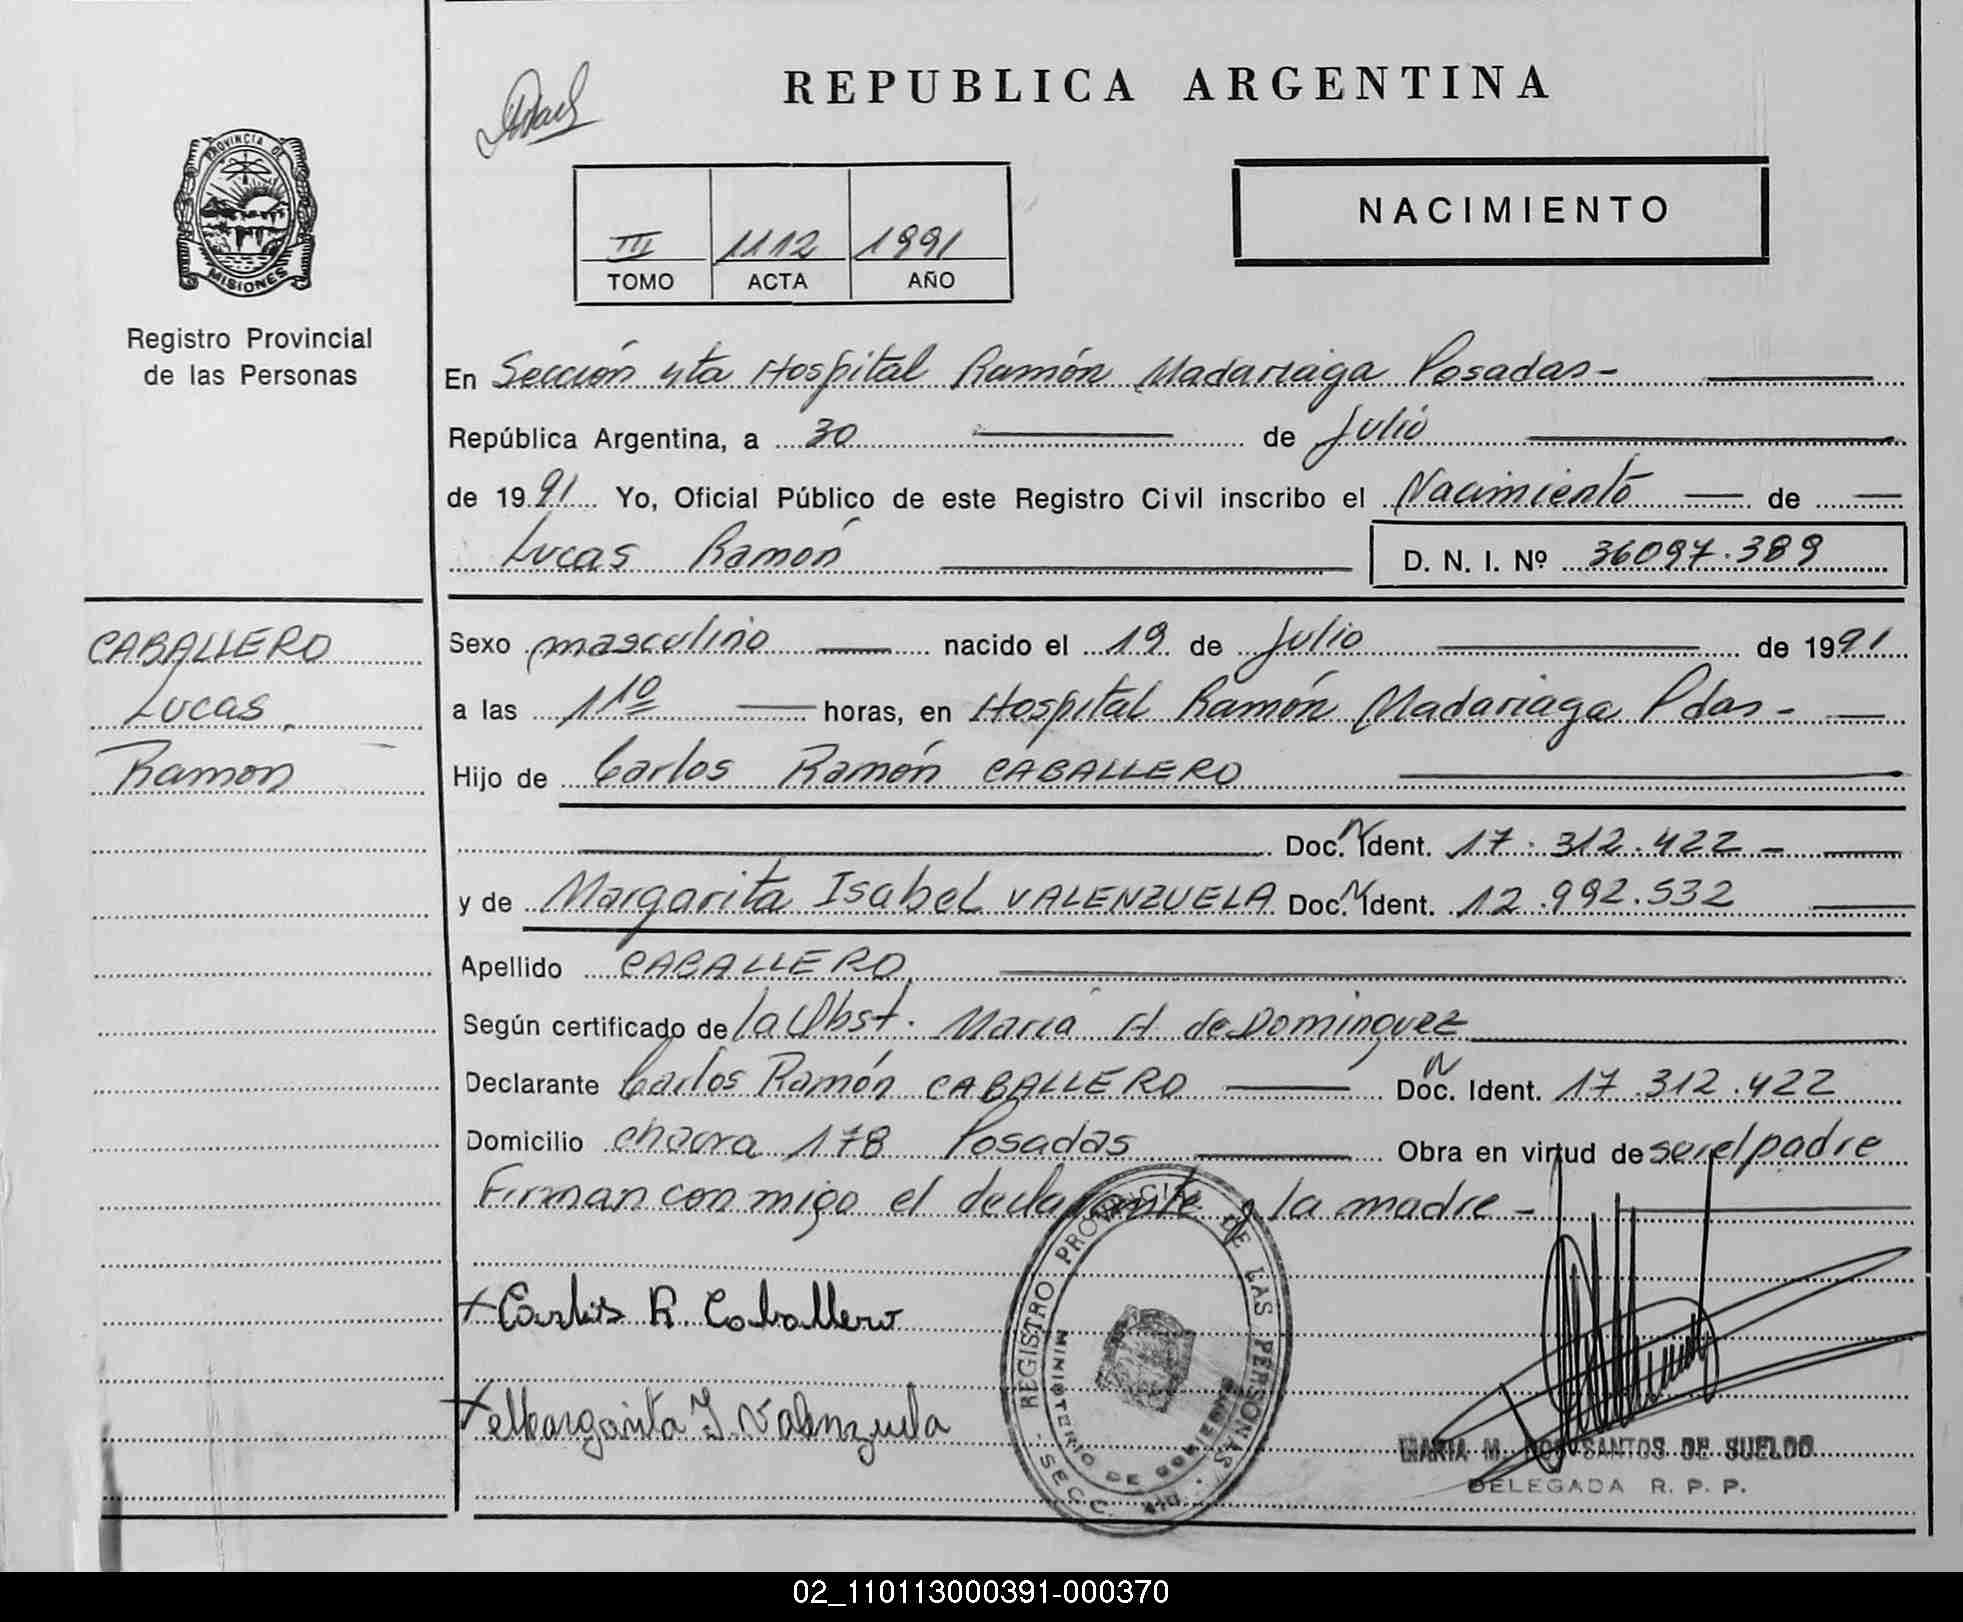 REPUBLICA ARGENTINA
PROVINCIA DE
MISIONES
Registro Provincial
de las Personas
NACIMIENTO
III 1112 1991
TOMO ACTA AÑO
En Sección 4ta Hospital Ramón Madariaga Posadas-
República Argentina, a 30 de Julio
de 1991 Yo, Oficial Público de este Registro Civil inscribo el Nacimiento de
Lucas Ramón D. N. I. Nº 36097.389
CABALLERO
Lucas
Ramon
Sexo masculino nacido el 19 de Julio de 1991
a las 11º horas, en Hospital Ramón Madariaga Pdas-
Hijo de Carlos Ramón CABALLERO
Doc. N Ident. 17.312.422-
y de Margarita Isabel VALENZUELA Doc. N Ident. 12.992.532
Apellido CABALLERO
Según certificado de la Obst. María H. de Dominguez
Declarante Carlos Ramón CABALLERO Doc. N Ident. 17.312.422
Domicilio chacra 178 Posadas Obra en virtud de ser el padre
Firman conmigo el declarante y la madre-
REGISTRO PROVINCIAL DE LAS PERSONAS
MINISTERIO DE GOBIERNO
SECC. 4ta
+ Carlos R. Caballero
+ Margarita I. Valenzuela
MARIA M. DOS SANTOS DE SUELDO
DELEGADA R. P. P.
02_110113000391-000370